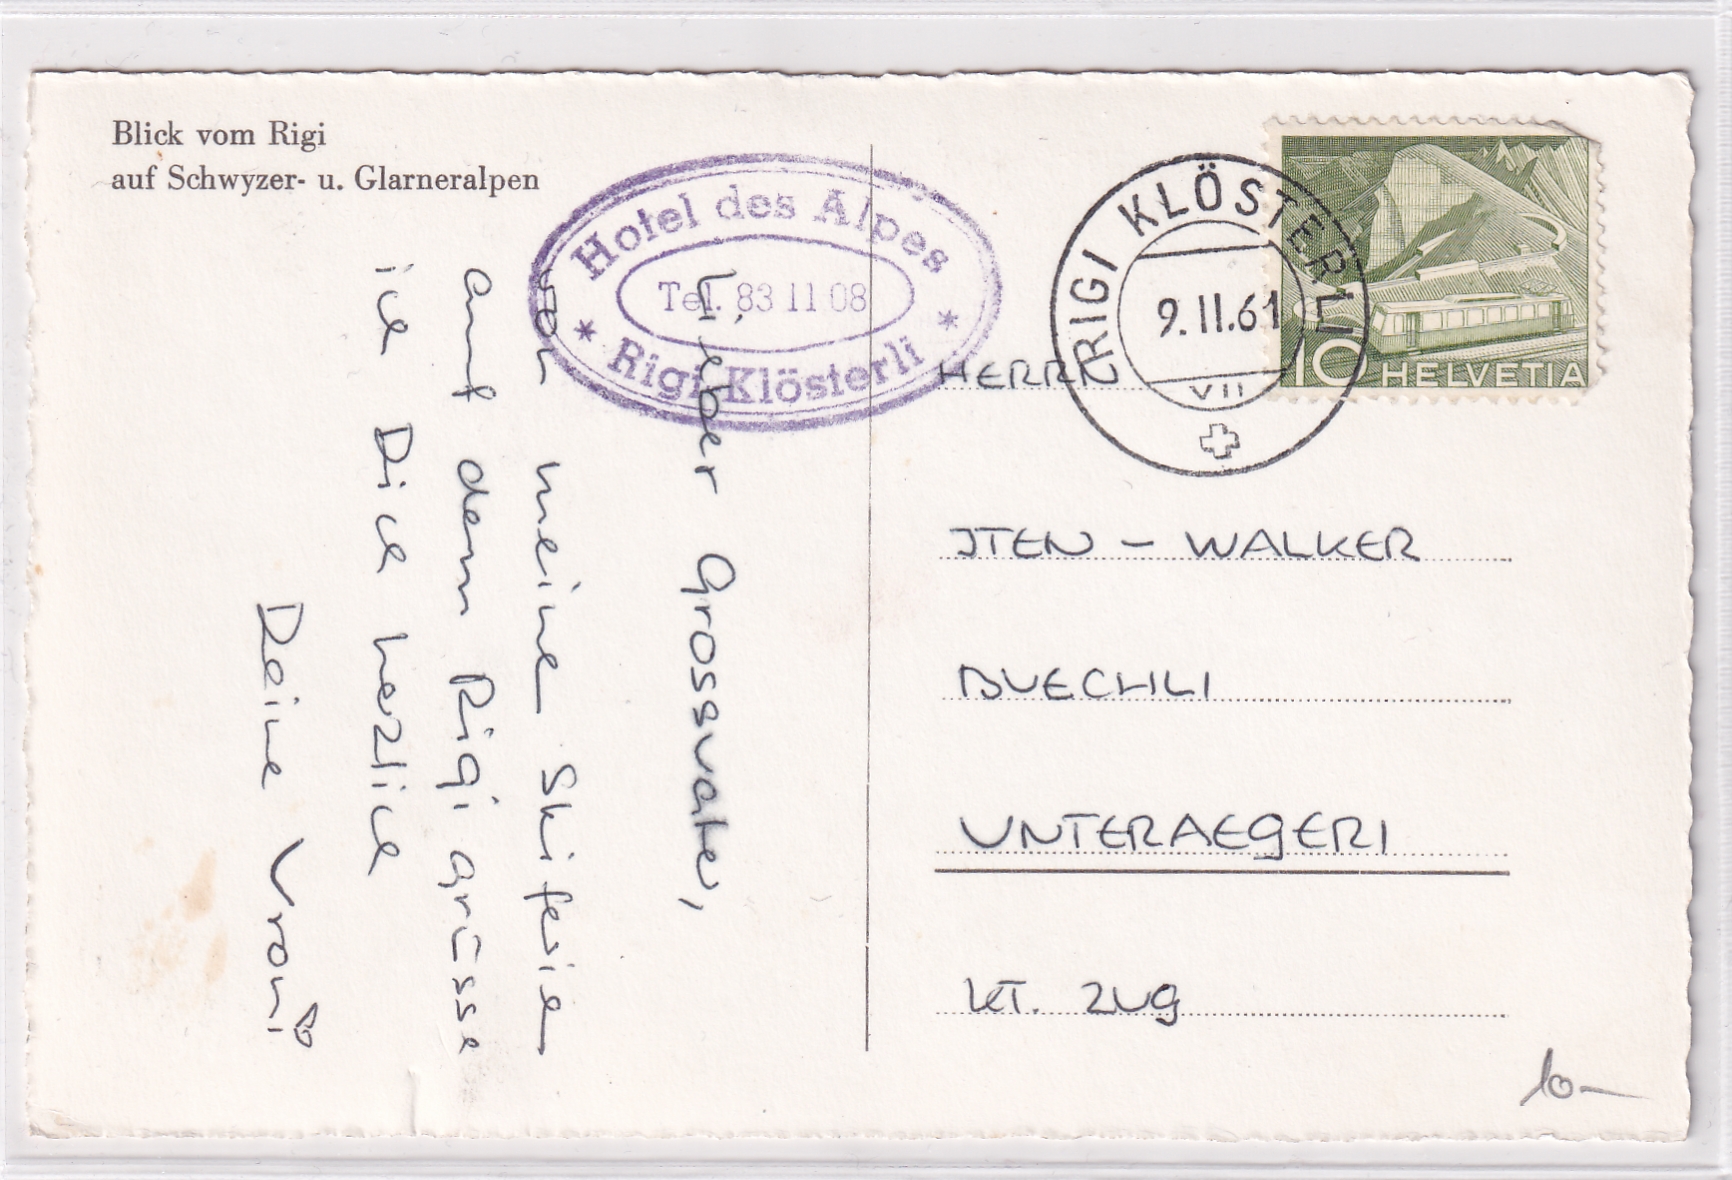 Blick vom Rigi
auf Schwyzer- u. Glarneralpen
Hotel des Alpes
Tel. 83 11 08
* Rigi-Klösterli *
RIGI KLÖSTERLI
9.II.61
VII
10 HELVETIA
Lieber Grossvater,
von meinen Skiferien
auf dem Rigi grüsse
ich Dich herzlich
Deine Vroni
HERRN
ITEN - WALKER
BUECHLI
UNTERAEGERI
KT. ZUG
10-